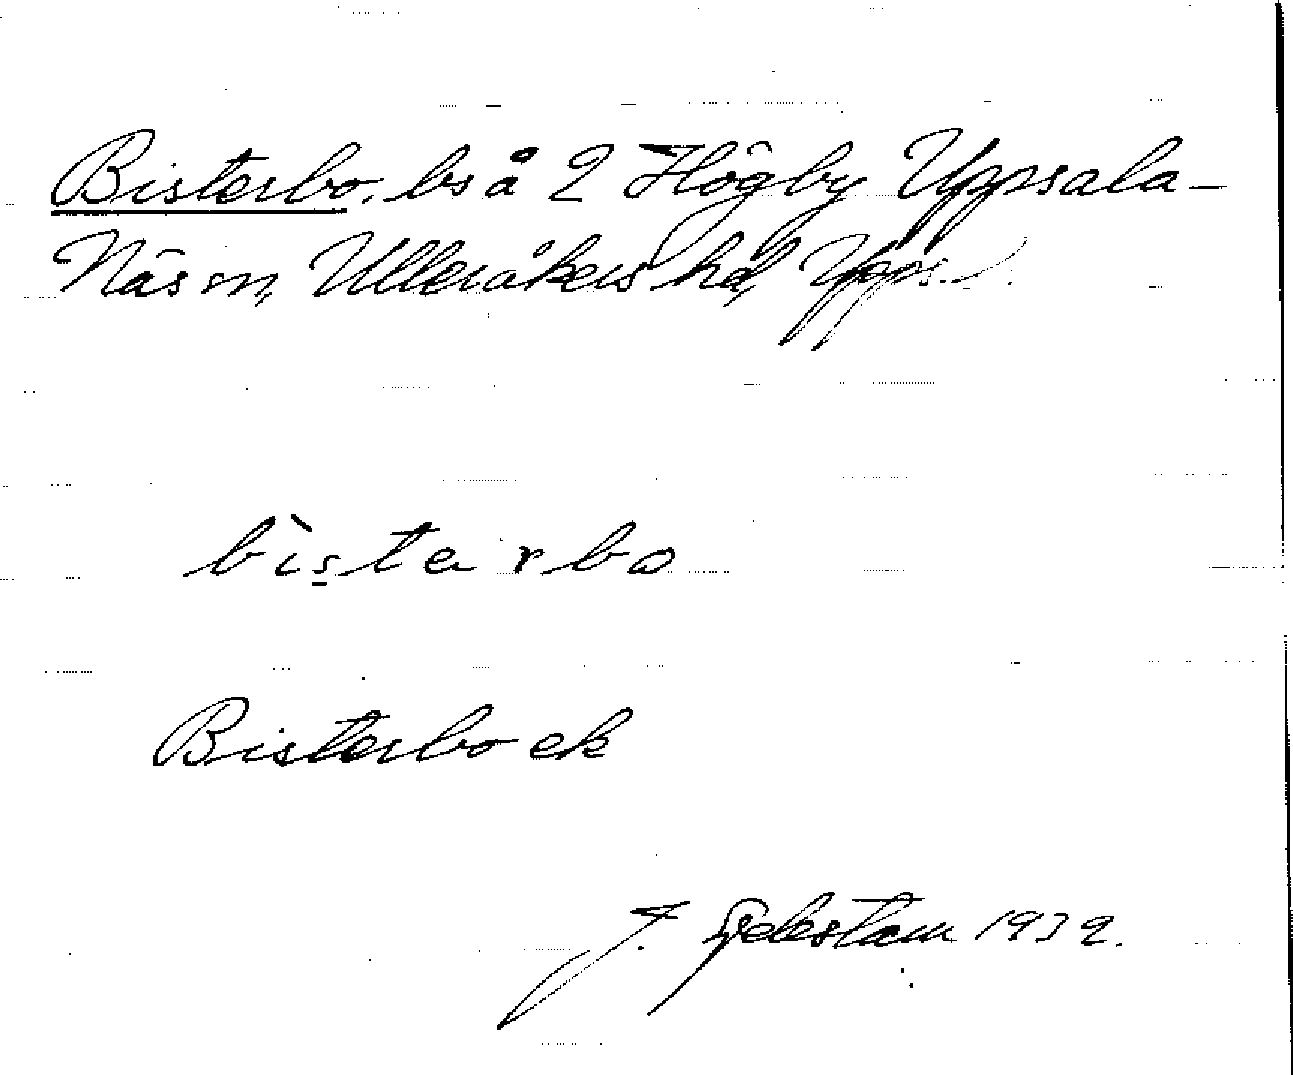 Bisterbo. bs å 2 Högby Uppsala-
Näs sn, Ulleråkers hd, Upps.
bìsterbo
Bisterbo ek
J. Gelestam 1932.